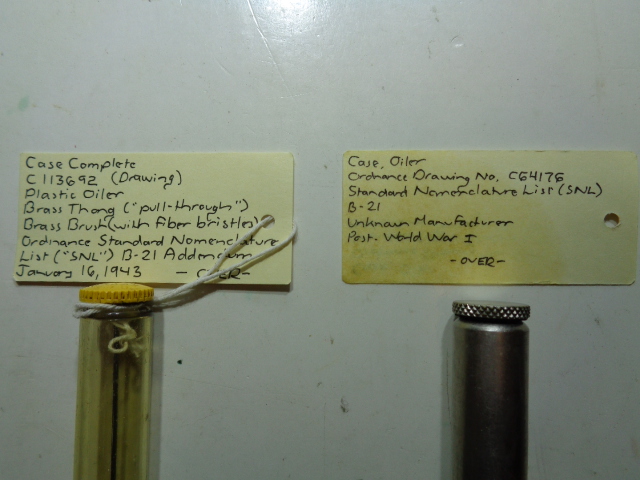 Case Complete
C113692 (Drawing)
Plastic Oiler
Brass Thong ("pull-through")
Brass Brush (with fiber bristles)
Ordnance Standard Nomenclature
List ("SNL") B-21 Addendum
January 16, 1943 - OVER-
Case, Oiler
Ordnance Drawing No. C64176
Standard Nomenclature List (SNL)
B-21
Unknown Manufacturer
Post-World War I
-OVER-